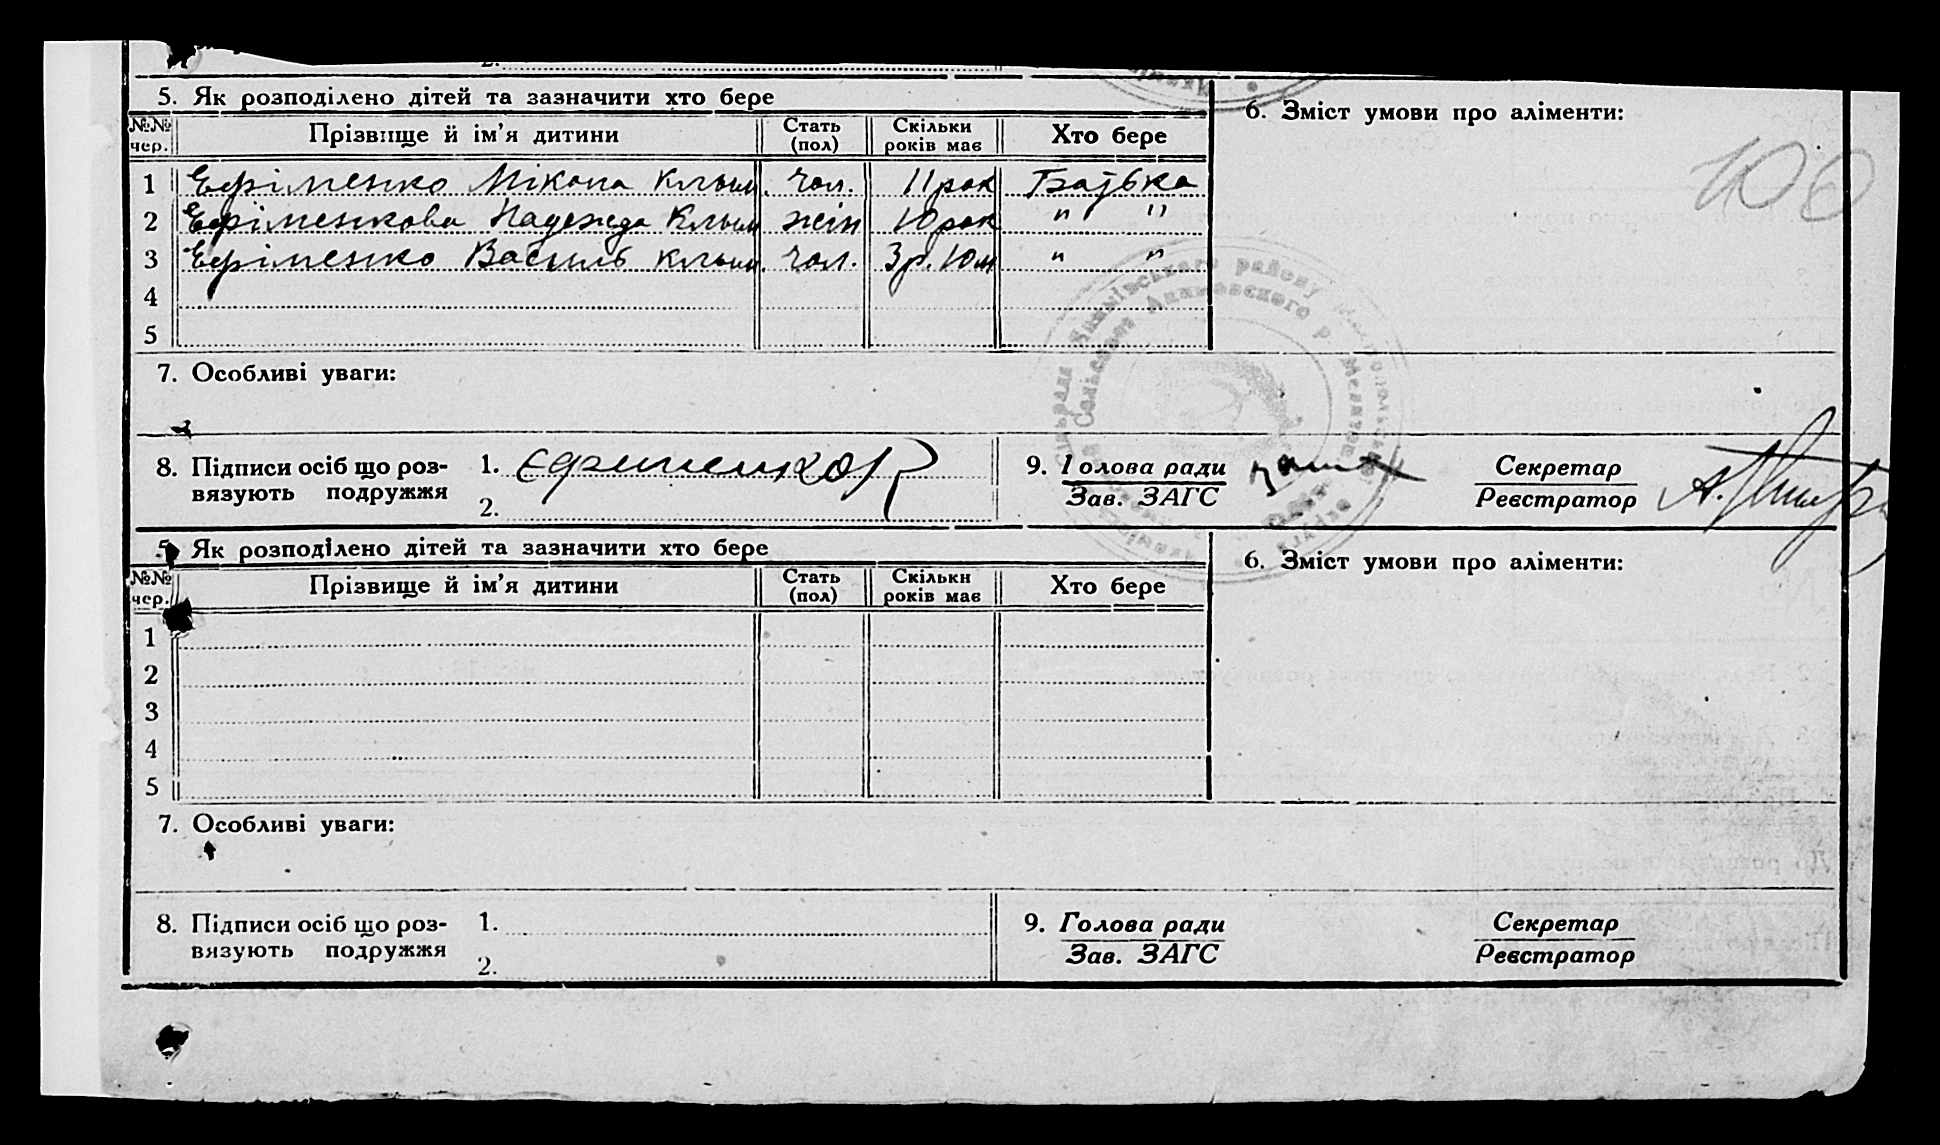 5. Як розподілено дітей та зазначити хто бере
6. Зміст умови про аліменти:
№№ чер.
Прізвище й ім'я дитини
Стать (пол)
Скільки років має
Хто бере
100
1 Єфріменко Мікола Клим. чол. 11 рок Батька
2 Єфріменкова Надежда Клим жін 10 рок " "
3 Єфріменко Василь Клим. чол. 3 р. 10 м " "
4
5
7. Особливі уваги:
8. Підписи осіб що роз-
вязують подружжя
1. Єфрименко
2.
9. Голова ради
Зав. ЗАГС
Секретар
Реєстратор
5. Як розподілено дітей та зазначити хто бере
6. Зміст умови про аліменти:
№№ чер.
Прізвище й ім'я дитини
Стать (пол)
Скільки років має
Хто бере
1
2
3
4
5
7. Особливі уваги:
8. Підписи осіб що роз-
вязують подружжя
1.
2.
9. Голова ради
Зав. ЗАГС
Секретар
Реєстратор